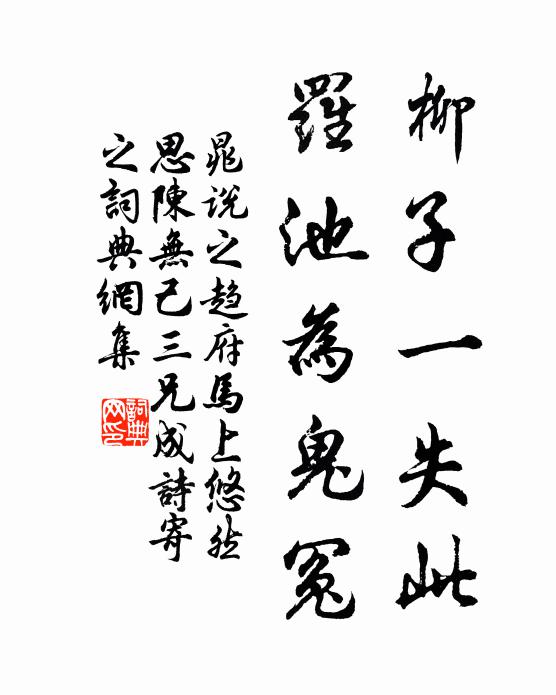 柳子一失此
羅池為鬼冤
晁说之趋府馬上悠然
思陳無己三兄成詩寄
之詞典網集
詞典
网印